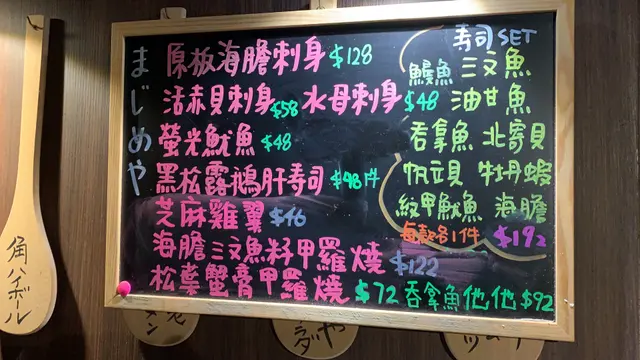 まじめや
原板海膽刺身 $128
活赤貝刺身 $58 水母刺身 $48
螢光魷魚 $48
黑松露鵝肝寿司 $48件
芝麻雞翼 $46
海膽三文魚籽甲羅燒 $122
松葉蟹膏甲羅燒 $72 吞拿魚他他 $92
寿司SET
鰻魚 三文魚
油甘魚
吞拿魚 北寄貝
帆立貝 牡丹蝦
紋甲魷魚 海膽
每款各1件 $192
角ハイボール